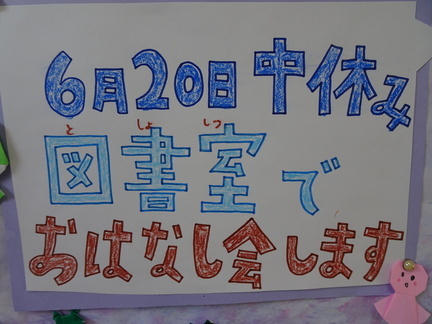 6月20日 中休み
としょしつ
図書室で
おはなし会します